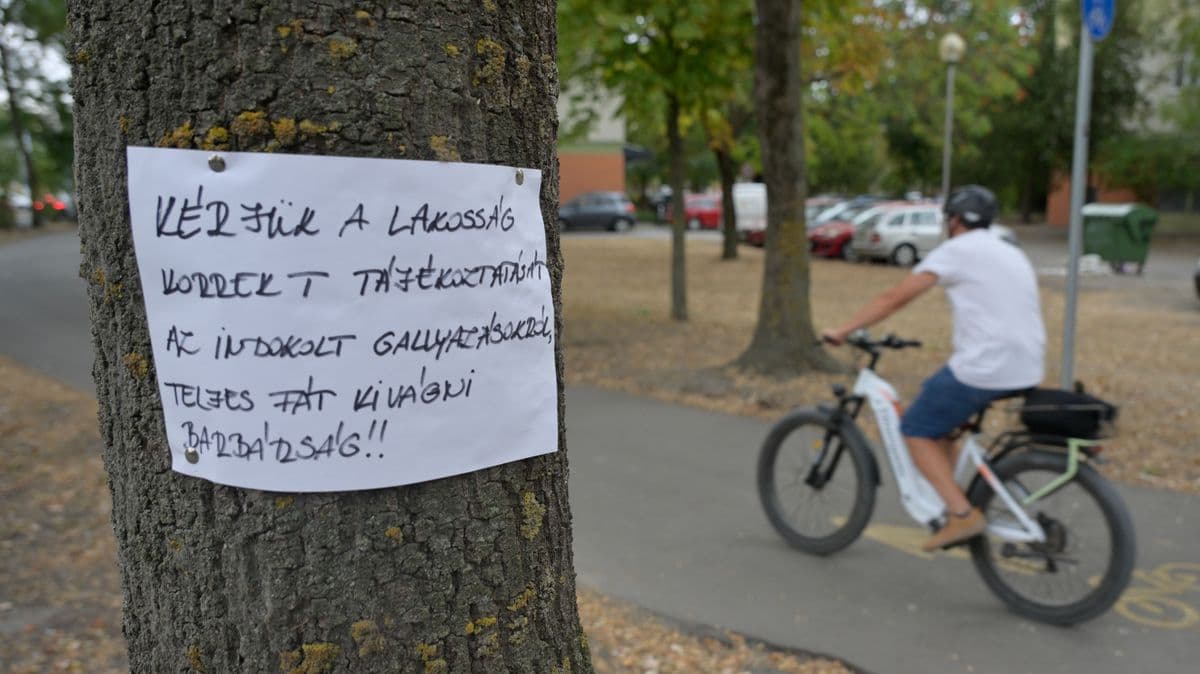 KÉRJÜK A LAKOSSÁG
KORREKT TÁJÉKOZTATÁSÁT
AZ INDOKOLT GALLYAZÁSOKRÓL,
TELJES FÁT KIVÁGNI
BARBÁRSÁG!!